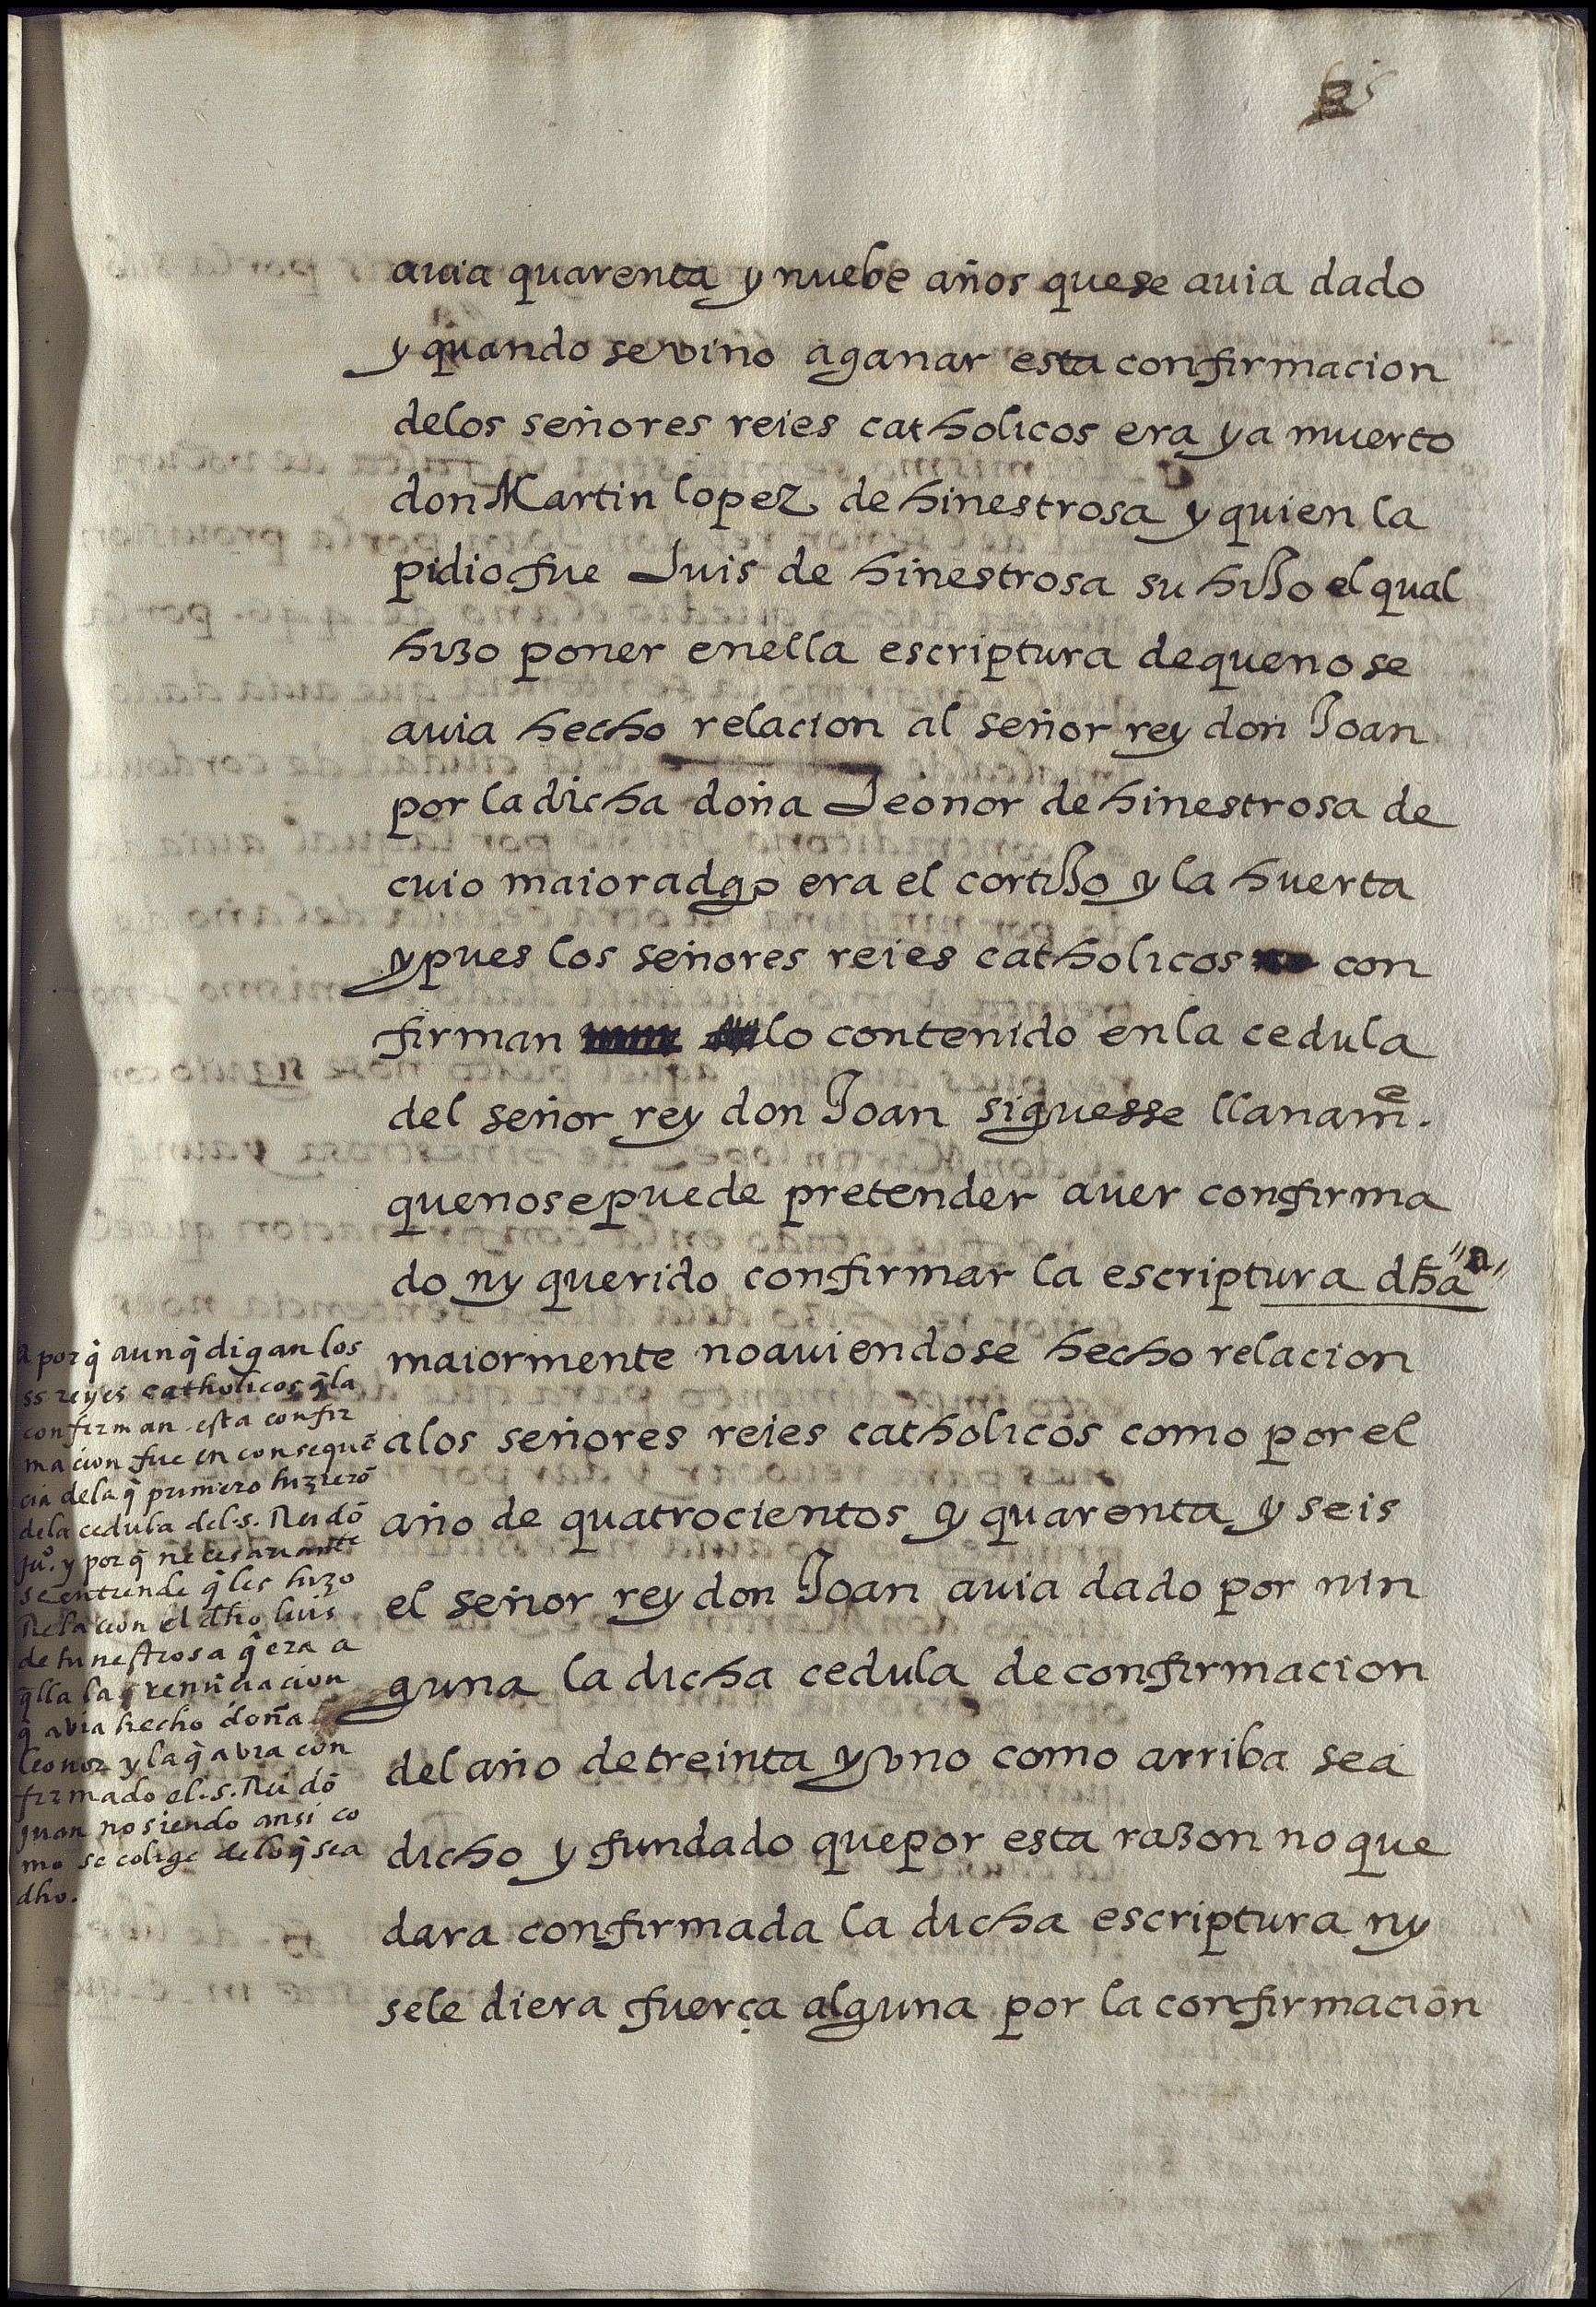 auia quarenta y nuebe años que se auia dado
y quando se vino a ganar esta confirmacion
delos señores reies catholicos era ya muerto
don Martin lopez de hinestrosa y quien la
pidio fue Luis de hinestrosa su hijo el qual
hizo poner enella escriptura de que no se
auia hecho relacion al señor rey don Joan
por la dicha doña Leonor de hinestrosa de
cuio maioradgo era el cortijo y la huerta
y pues los señores reies catholicos con
firman lo contenido en la cedula
del señor rey don Joan siguesse llanamᵉ.
que no se puede pretender auer confirma
do ny querido confirmar la escriptura dha "a"
maiormente no auiendose hecho relacion
alos señores reies catholicos como por el
año de quatrocientos y quarenta y seis
el señor rey don Joan auia dado por nin
guna la dicha cedula de confirmacion
del año de treinta y vno como arriba se a
dicho y fundado que por esta razon no que
dara confirmada la dicha escriptura ny
se le diera fuerça alguna por la confirmacion
a porq̃ aunq̃ digan los
ss reyes catholicos q̃ la
confirman esta confir
macion fue en consequẽ
cia dela q̃ primero hizierõ
dela cedula del .s. Rei dõ
juº. y porq̃ necesariamte
se entiende q̃ les hizo
Relacion el dho luis
de hinestrosa q̃ era a
q̃lla la renũciacion
q̃ avia hecho doña
leonor y la q̃ avia con
firmado el .s. Rei dõ
juan no siendo ansi co
mo se colige delo q̃ se a
dho.